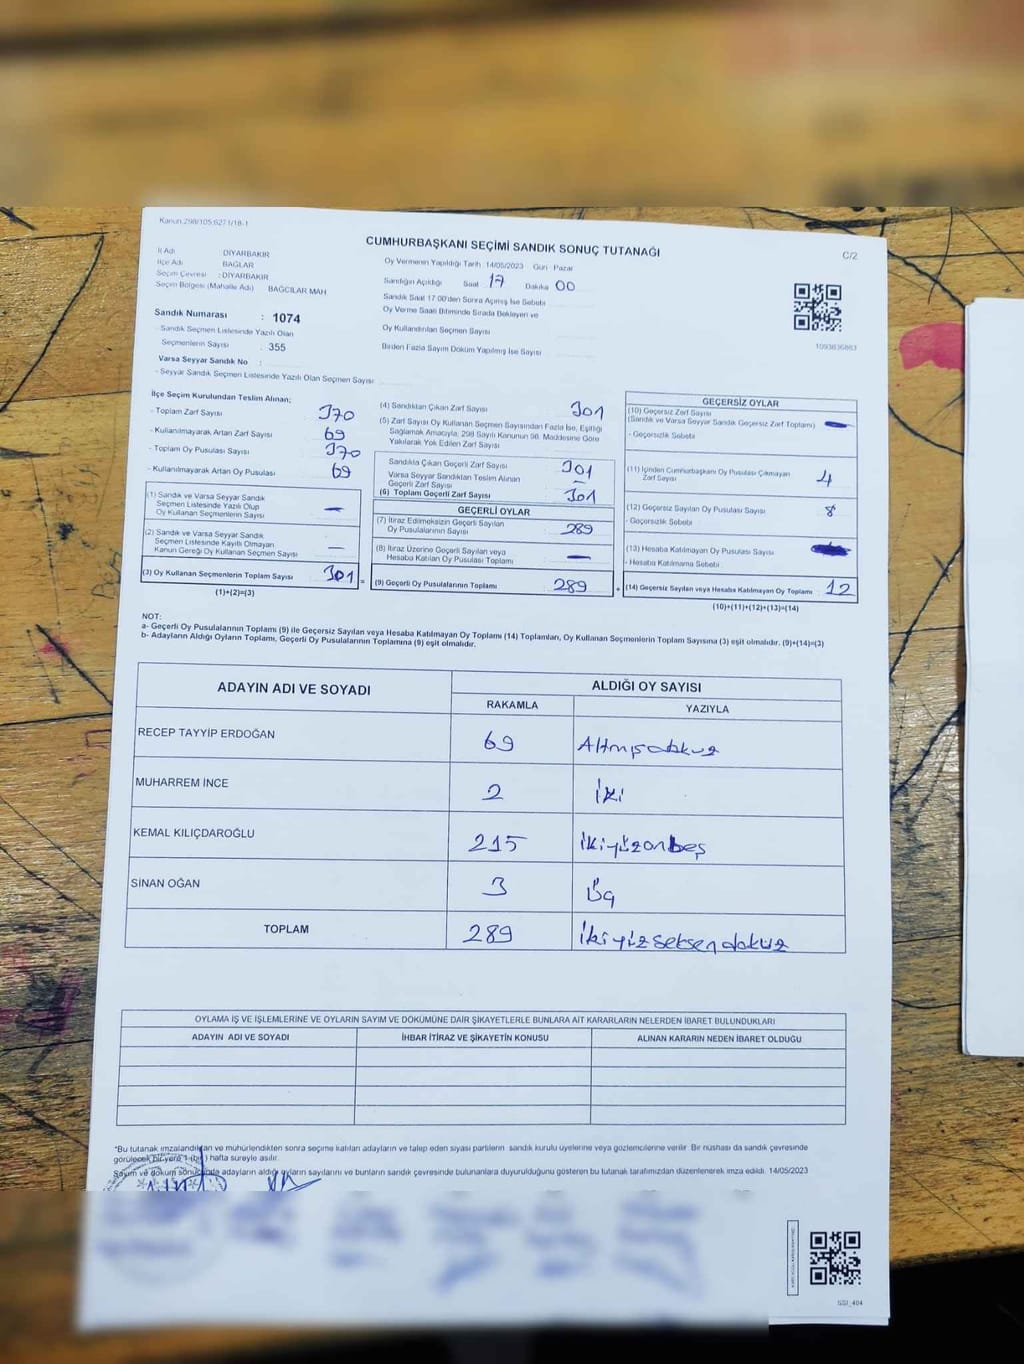 Kanun:298/105;6271/18-1
CUMHURBAŞKANI SEÇİMİ SANDIK SONUÇ TUTANAĞI
C/2
İl Adı DİYARBAKIR
İlçe Adı BAĞLAR
Seçim Çevresi : DİYARBAKIR
Seçim Bölgesi (Mahalle Adı) BAĞCILAR MAH
Oy Vermenin Yapıldığı Tarih 14/05/2023 Gün Pazar
Sandığın Açıldığı Saat 17 Dakika 00
Sandık Saat 17:00'den Sonra Açılmış İse Sebebi
Oy Verme Saati Bitiminde Sırada Bekleyen ve
Oy Kullandırılan Seçmen Sayısı
Birden Fazla Sayım Döküm Yapılmış İse Sayısı
Sandık Numarası : 1074
- Sandık Seçmen Listesinde Yazılı Olan
Seçmenlerin Sayısı : 355
Varsa Seyyar Sandık No :
- Seyyar Sandık Seçmen Listesinde Yazılı Olan Seçmen Sayısı
1093636863
İlçe Seçim Kurulundan Teslim Alınan;
- Toplam Zarf Sayısı 370
- Kullanılmayarak Artan Zarf Sayısı 69
- Toplam Oy Pusulası Sayısı 370
- Kullanılmayarak Artan Oy Pusulası 69
(1) Sandık ve Varsa Seyyar Sandık
Seçmen Listesinde Yazılı Olup
Oy Kullanan Seçmenlerin Sayısı —
(2) Sandık ve Varsa Seyyar Sandık
Seçmen Listesinde Kayıtlı Olmayan
Kanun Gereği Oy Kullanan Seçmen Sayısı —
(3) Oy Kullanan Seçmenlerin Toplam Sayısı 301 =
(1)+(2)=(3)
(4) Sandıktan Çıkan Zarf Sayısı 301
(5) Zarf Sayısı Oy Kullanan Seçmen Sayısından Fazla İse, Eşitliği
Sağlamak Amacıyla, 298 Sayılı Kanunun 98. Maddesine Göre
Yakılarak Yok Edilen Zarf Sayısı
Sandıkta Çıkan Geçerli Zarf Sayısı 301
Varsa Seyyar Sandıktan Teslim Alınan
Geçerli Zarf Sayısı —
(6) Toplam Geçerli Zarf Sayısı 301
GEÇERLİ OYLAR
(7) İtiraz Edilmeksizin Geçerli Sayılan
Oy Pusulalarının Sayısı 289
(8) İtiraz Üzerine Geçerli Sayılan veya
Hesaba Katılan Oy Pusulası Toplamı —
(9) Geçerli Oy Pusulalarının Toplamı 289 +
GEÇERSİZ OYLAR
(10) Geçersiz Zarf Sayısı
(Sandık ve Varsa Seyyar Sandık Geçersiz Zarf Toplamı) —
- Geçersizlik Sebebi
(11) İçinden Cumhurbaşkanı Oy Pusulası Çıkmayan
Zarf Sayısı 4
(12) Geçersiz Sayılan Oy Pusulası Sayısı 8
- Geçersizlik Sebebi
(13) Hesaba Katılmayan Oy Pusulası Sayısı
- Hesaba Katılmama Sebebi
(14) Geçersiz Sayılan veya Hesaba Katılmayan Oy Toplamı 12
(10)+(11)+(12)+(13)=(14)
NOT:
a- Geçerli Oy Pusulalarının Toplamı (9) ile Geçersiz Sayılan veya Hesaba Katılmayan Oy Toplamı (14) Toplamları, Oy Kullanan Seçmenlerin Toplam Sayısına (3) eşit olmalıdır. (9)+(14)=(3)
b- Adayların Aldığı Oyların Toplamı, Geçerli Oy Pusulalarının Toplamına (9) eşit olmalıdır.
ADAYIN ADI VE SOYADI
ALDIĞI OY SAYISI
RAKAMLA YAZIYLA
RECEP TAYYİP ERDOĞAN 69 Altmışdokuz
MUHARREM İNCE 2 İki
KEMAL KILIÇDAROĞLU 215 İkiyüzonbeş
SİNAN OĞAN 3 Üç
TOPLAM 289 İkiyüzseksendokuz
OYLAMA İŞ VE İŞLEMLERİNE VE OYLARIN SAYIM VE DÖKÜMÜNE DAİR ŞİKAYETLERLE BUNLARA AİT KARARLARIN NELERDEN İBARET BULUNDUKLARI
ADAYIN ADI VE SOYADI İHBAR İTİRAZ VE ŞİKAYETİN KONUSU ALINAN KARARIN NEDEN İBARET OLDUĞU
*Bu tutanak imzalandıktan ve mühürlendikten sonra seçime katılan adayların ve talep eden siyasi partilerin sandık kurulu üyelerine veya gözlemcilerine verilir. Bir nüshası da sandık çevresinde
görülecek bir yere 1 (bir) hafta süreyle asılır.
Sayım ve döküm sonucunda adayların aldığı oyların sayılarını ve bunların sandık çevresinde bulunanlara duyurulduğunu gösteren bu tutanak tarafımızdan düzenlenerek imza edildi. 14/05/2023
SSI_404